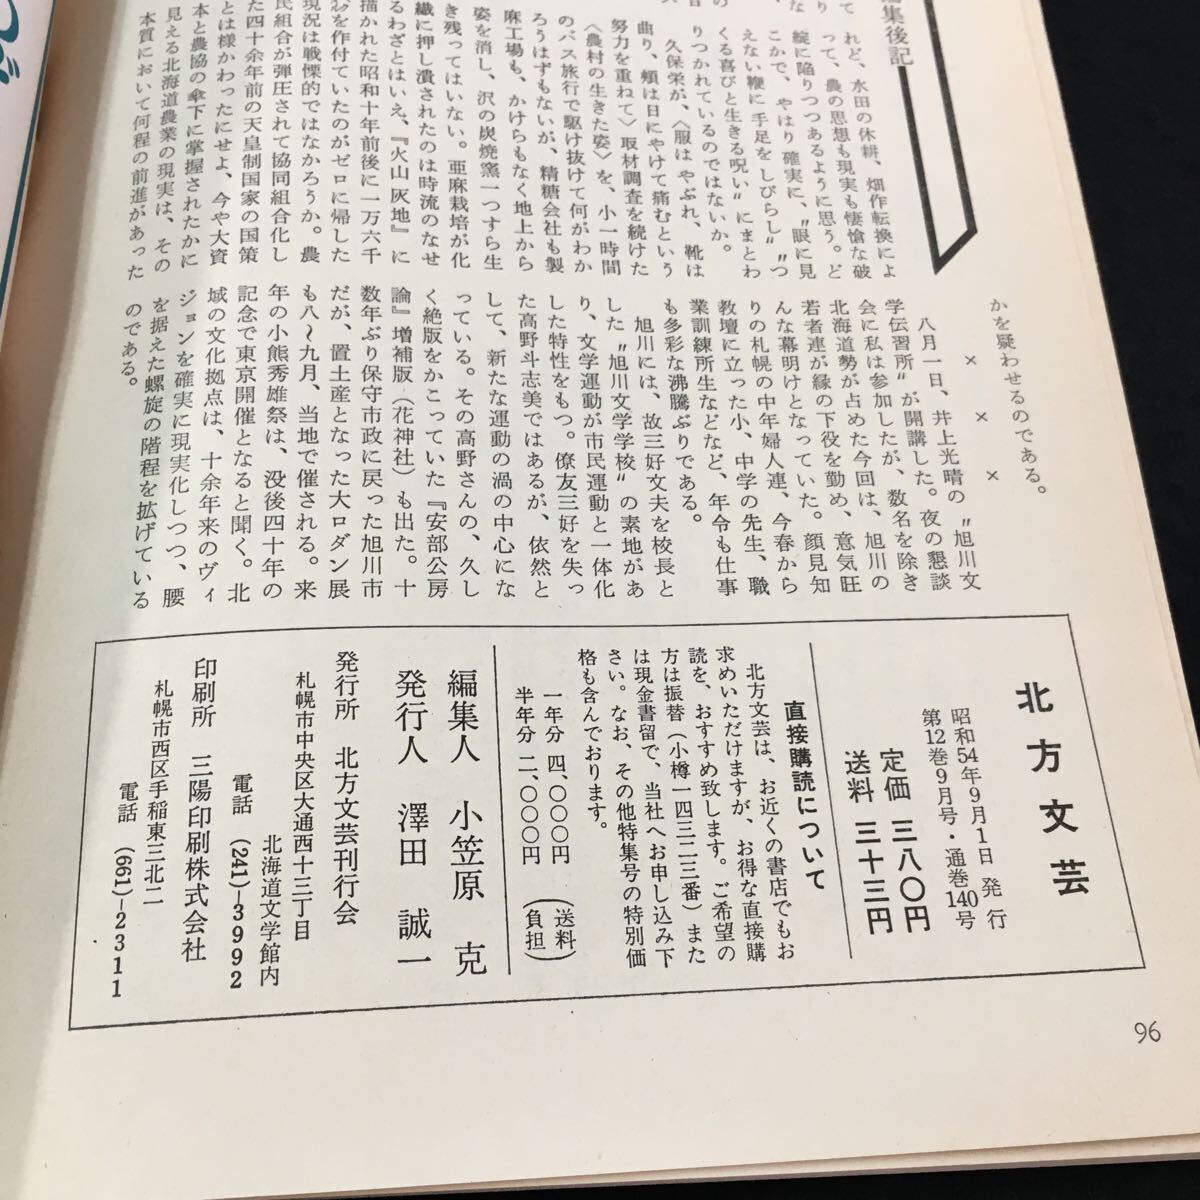 編集後記
れど、水田の休耕、畑作転換によ
って、農の思想も現実も悽愴な破
綻に陥りつつあるように思う。ど
こかで、やはり確実に、〝眼に見
えない鞭に手足をしびらし〟〝つ
くる喜びと生きる呪い〟にまとわ
りつかれているのではないか。
久保栄が、〈服はやぶれ、靴は
曲り、頬は日にやけて痛むという
努力を重ねて〉取材調査を続けた
〈農村の生きた姿〉を、小一時間
のバス旅行で駆け抜けて何がわか
ろうはずもないが、精糖会社も製
麻工場も、かけらもなく地上から
姿を消し、沢の炭焼窯一つすら生
き残ってはいない。亜麻栽培が化
繊に押し潰されたのは時流のなせ
るわざとはいえ、『火山灰地』に
描かれた昭和十年前後に一万六千
を作付ていたのがゼロに帰した
現況は戦慄的ではなかろうか。農
民組合が弾圧されて協同組合化し
た四十余年前の天皇制国家の国策
とは様かわったにせよ、今や大資
本と農協の傘下に掌握されたかに
見える北海道農業の現実は、その
本質において何程の前進があった
かを疑わせるのである。
× × ×
八月一日、井上光晴の〝旭川文
学伝習所〟が開講した。夜の懇談
会に私は参加したが、数名を除き
北海道勢が占めた今回は、旭川の
若者連が縁の下役を勤め、意気旺
んな幕明けとなっていた。顔見知
りの札幌の中年婦人連、今春から
教壇に立った小、中学の先生、職
業訓練所生などなど、年令も仕事
も多彩な沸騰ぶりである。
旭川には、故三好文夫を校長と
した〝旭川文学学校〟の素地があ
り、文学運動が市民運動と一体化
した特性をもつ。僚友三好を失っ
た高野斗志美ではあるが、依然と
して、新たな運動の渦の中心にな
っている。その高野さんの、久し
く絶版をかこっていた『安部公房
論』増補版（花神社）も出た。十
数年ぶり保守市政に戻った旭川市
だが、置土産となった大ロダン展
も八〜九月、当地で催される。来
年の小熊秀雄祭は、没後四十年の
記念で東京開催となると聞く。北
域の文化拠点は、十余年来のヴィ
ジョンを確実に現実化しつつ、腰
を据えた螺旋の階程を拡げている
のである。
北方文芸
昭和54年9月1日発行
第12巻9月号・通巻140号
定価 三八〇円
送料 三十三円
直接購読について
北方文芸は、お近くの書店でもお
求めいただけますが、お得な直接購
読を、おすすめ致します。ご希望の
方は振替（小樽一四三二三番）また
は現金書留で、当社へお申し込み下
さい。なお、その他特集号の特別価
格も含んでおります。
一年分 四、〇〇〇円（送料
半年分 二、〇〇〇円（負担）
編集人 小笠原 克
発行人 澤田 誠一
発行所 北方文芸刊行会
札幌市中央区大通西十三丁目
北海道文学館内
電話 (241)-3992
印刷所 三陽印刷株式会社
札幌市西区手稲東三北二
電話 (661)-2311
96